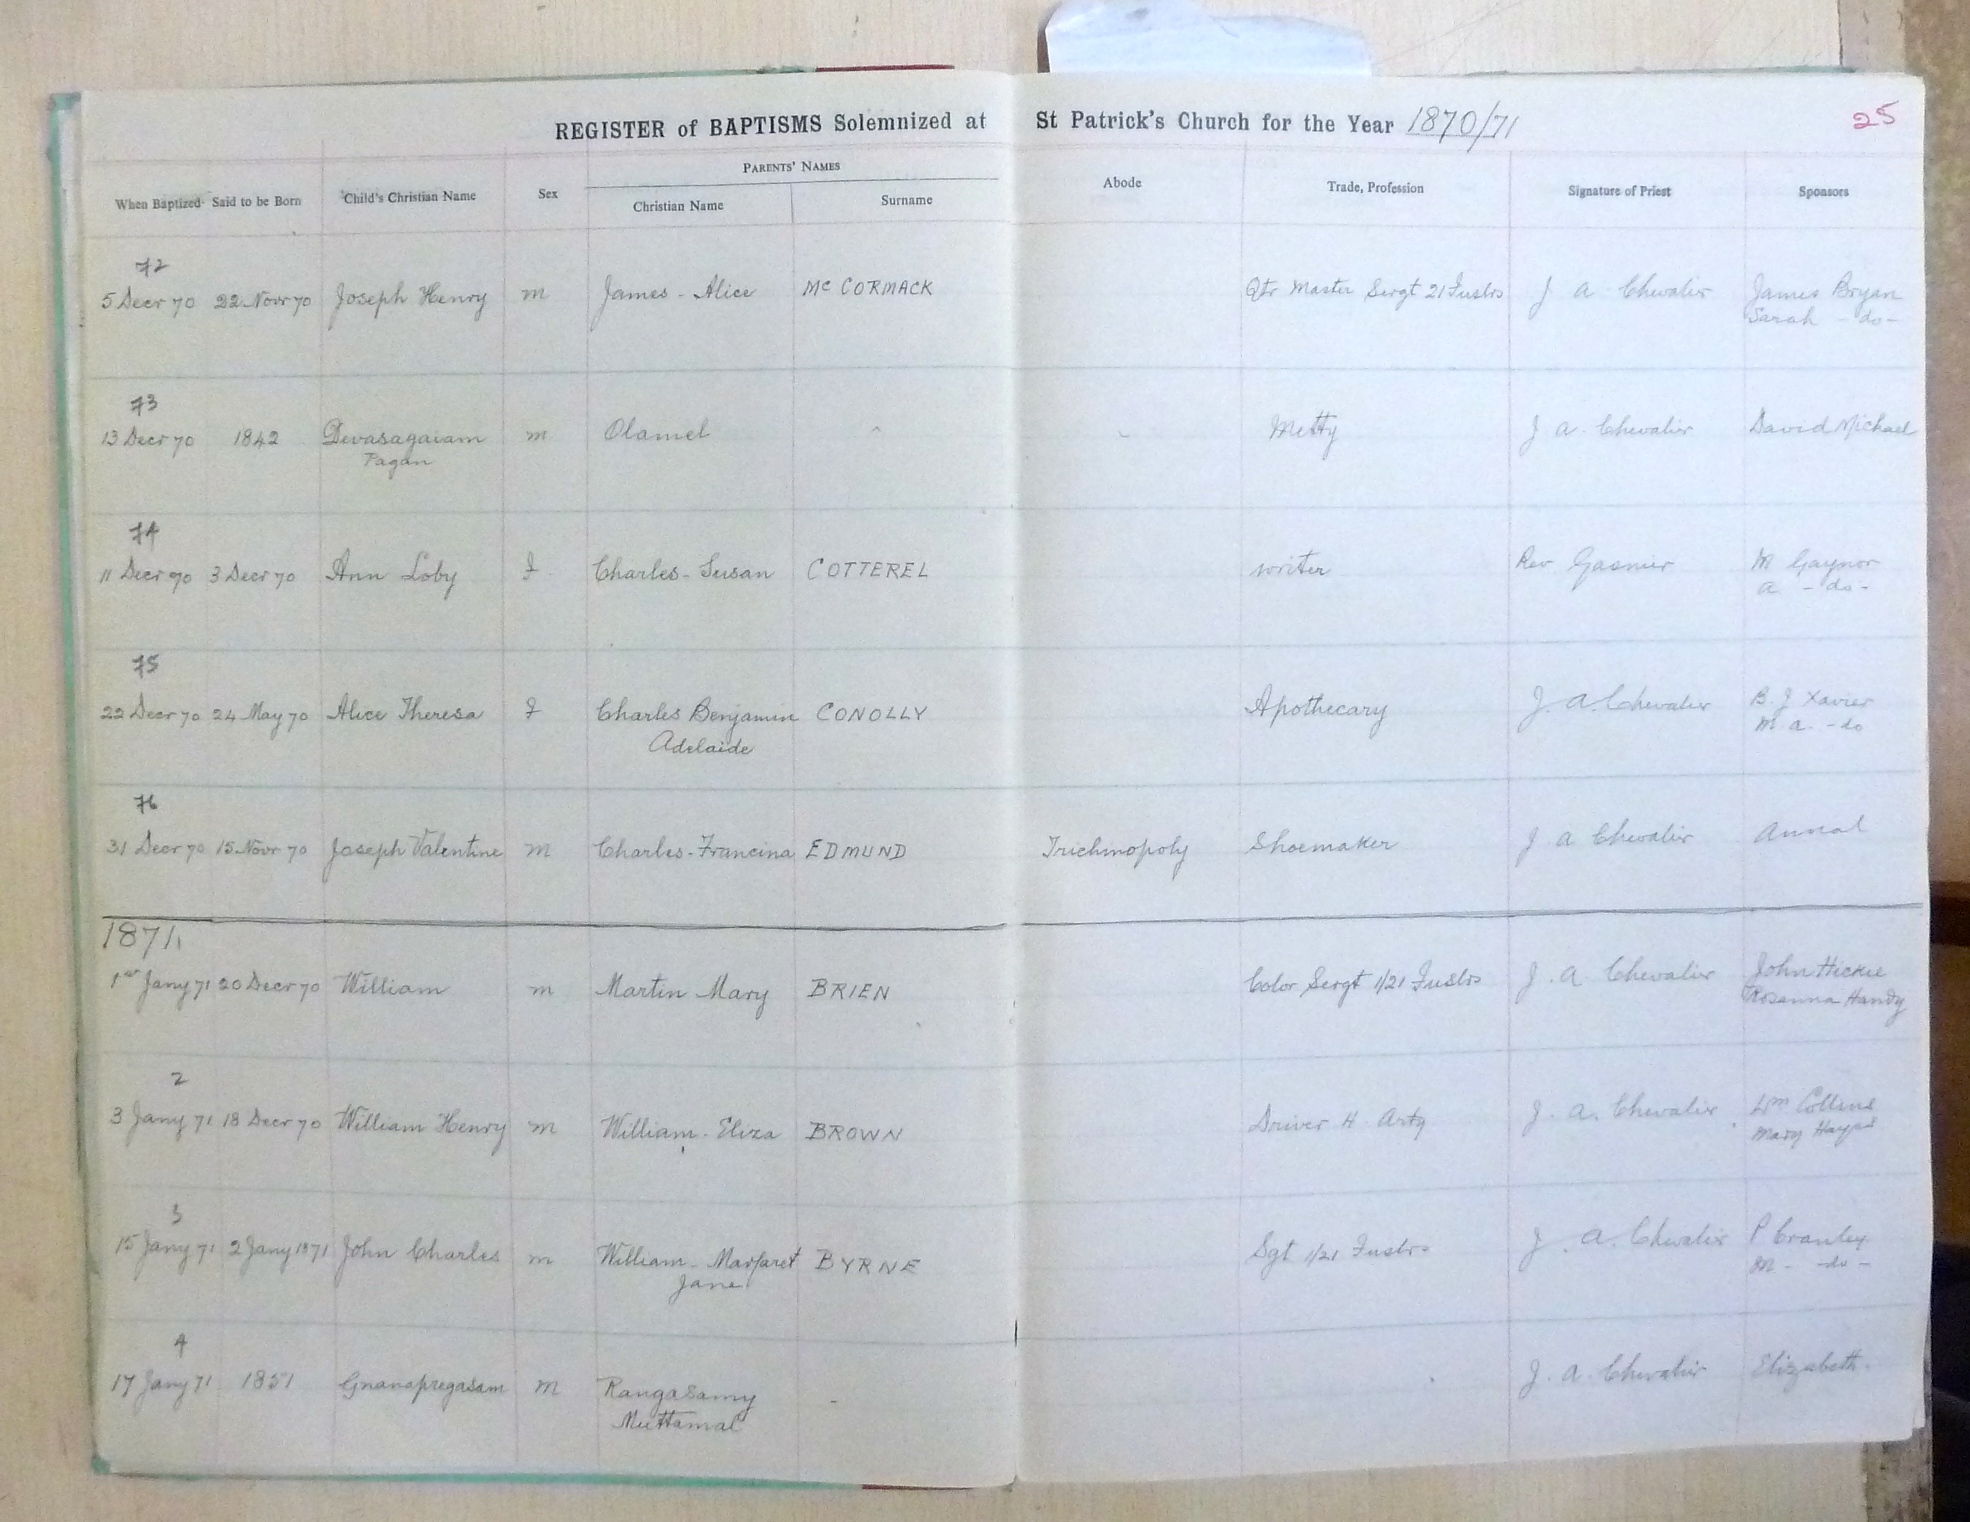 REGISTER of BAPTISMS Solemnized at St Patrick's Church for the Year 1870/71
25
PARENTS' NAMES
When Baptized Said to be Born Child's Christian Name Sex Christian Name Surname Abode Trade, Profession Signature of Priest Sponsors
72
5 Decr 70 22 Novr 70 Joseph Henry m James - Alice Mc CORMACK Qtr Master Sergt 21 Fuslrs J A Chevalier James Bryan
Sarah - do -
73
13 Decr 70 1842 Devasagaiam m Olamel Metty J A. Chevalier David Michael
Pagan
74
11 Decr 70 3 Decr 70 Ann Loby F. Charles - Susan COTTEREL writer Rev Gasnier M Gaynor
a - do -
75
22 Decr 70 24 May 70 Alice Theresa F Charles Benjamin CONOLLY Apothecary J. A. Chevalier B. J Xavier
Adelaide M a. - do
76
31 Decr 70 15 Novr 70 Joseph Valentine m Charles - Francina EDMUND Trichinopoly Shoemaker J A Chevalier Annal
1871
1st Jany 71 20 Decr 70 William m Martin Mary BRIEN Color Sergt 1/21 Fuslrs J. A Chevalier John Hickie
Rosanna Handy
2
3 Jany 71 18 Decr 70 William Henry m William - Eliza BROWN Driver H. Arty J. A. Chevalier Wm Collins
Mary Hayes
3
15 Jany 71 2 Jany 1871 John Charles m William - Margaret BYRNE Sgt 1/21 Fuslrs J. A. Chevalier P Cranley
Jane M - - do -
4
17 Jany 71 1851 Gnanapregasam m Rangasamy - J. A. Chevalier Elizabeth.
Muttamal